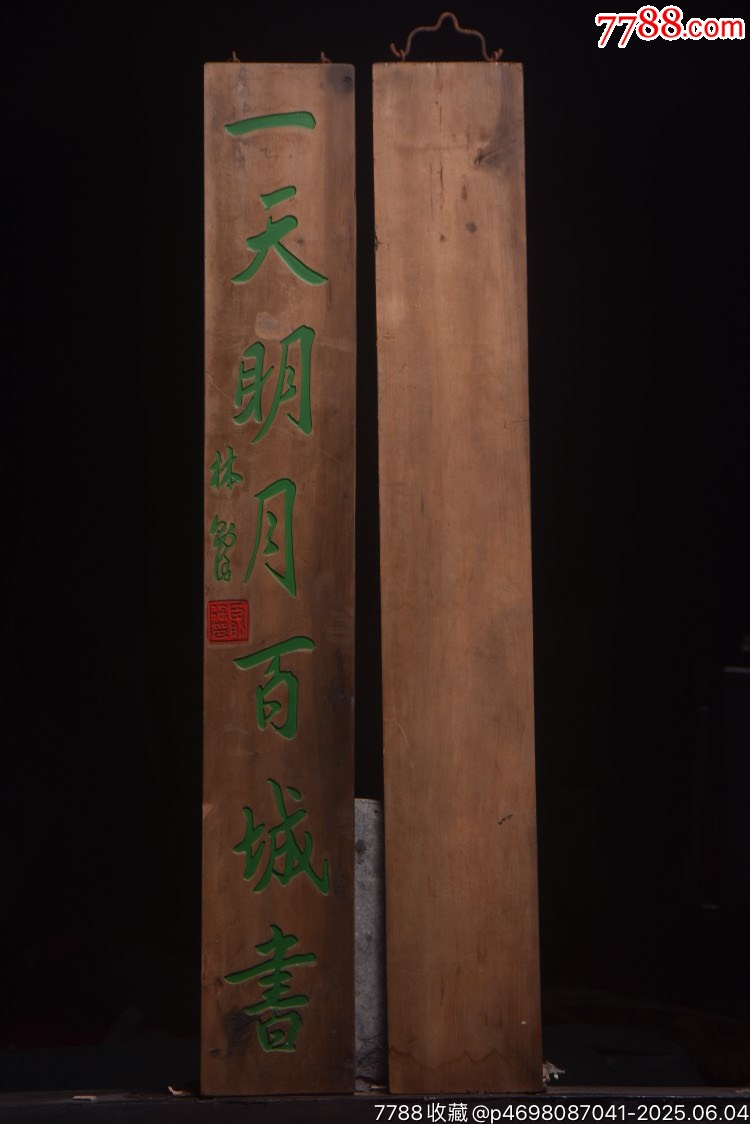 7788.com
一天明月百城書
林
7788收藏@p4698087041-2025.06.04